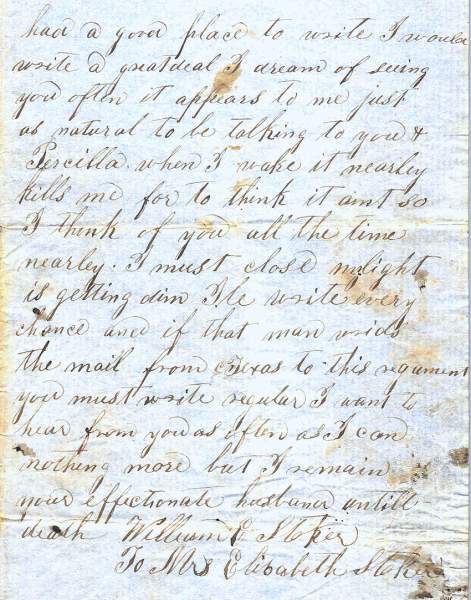 had a good place to write I would
write a greatdeal I dream of seeing
you often it appears to me just
as natural to be talking to you &
Percilla when I wake it nearley
kills me for to think it aint so
I think of you all the time
nearley. I must close mylight
is getting dim Ile write every
chance and if that man rides
the mail from Texas to this regument
you must write regular I want to
hear from you as often as I can
nothing more but I remain
your effectionate husband untill
death William E Stoker
To Mrs Elizabeth Stoker